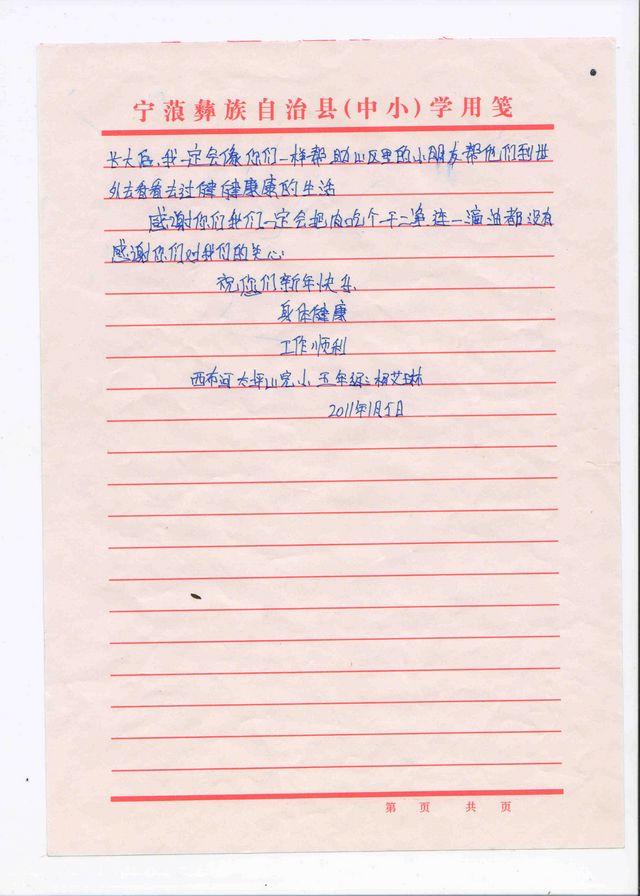 宁蒗彝族自治县(中小)学用笺
长大后,我一定会像你们一样帮助山区里的小朋友帮他们到世
外去看看去过健健康康的生活
感谢你们我们一定会把肉吃个干二净连一滴油都没有
感谢你们对我们的关心
祝您们新年快乐
身体健康
工作顺利
西布河大坪山完小五年级:杨艾琳
2011年1月5日
第 页 共 页